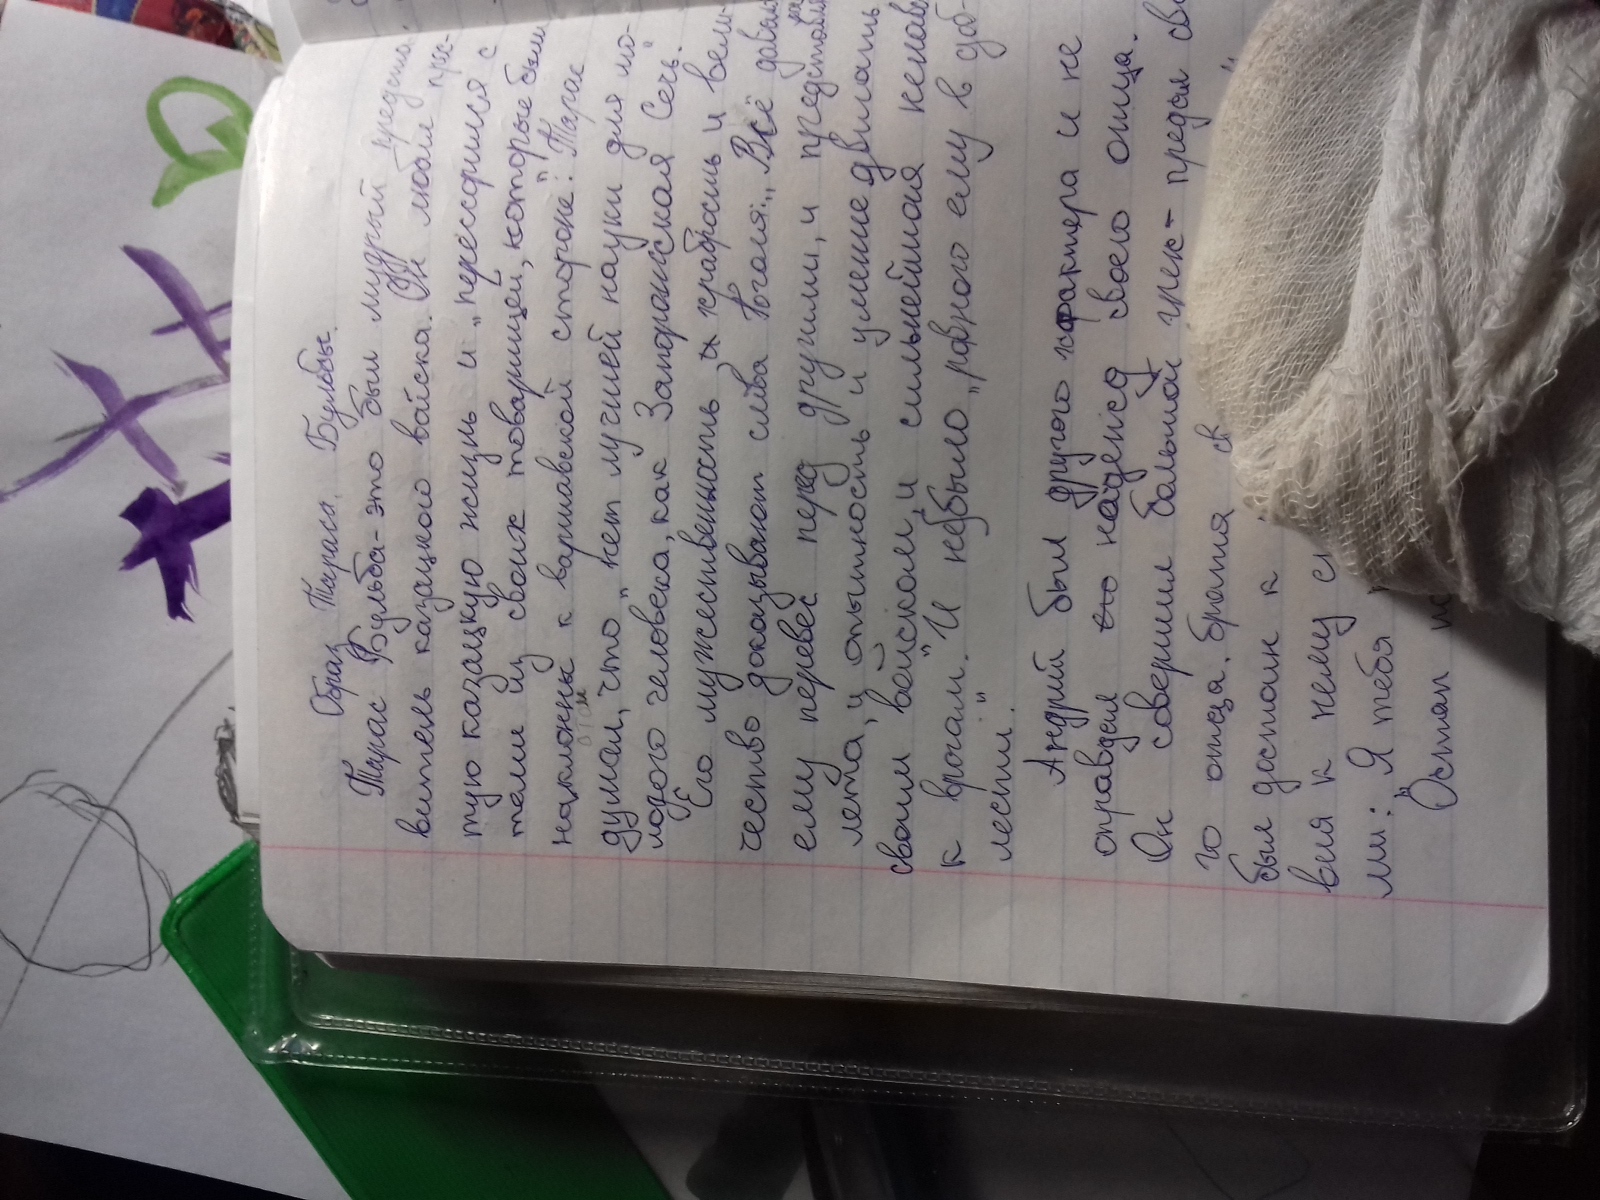 Образ Тараса Бульбы.
Тарас Бульба - это был мудрый
витель казацкого вайска. Он любил прос-
тую казацкую жизнь и „перессорился с
теми из своих товарищей, которые были
наклонны к варшавской стороне". Тарас
думал, что „нет лучшей науки для мо-
лодого человека, как Запорожская Сечь."
Его мужественность и храбрость и вели-
чество доказывают слова Гоголя: „Всё давало
ему перевес перед другими, и
лета, и опытность и умение двигать
своим войском, и сильнейшая
к врогам." И небыло „равного ему в доб-
лести."
Андрий был другого характера и не
оправдал надежд своего отца.
Он совершил большой грех - предал
го отца, брата
был достоин к
вея к нему
ми: „Я тебя
Остап